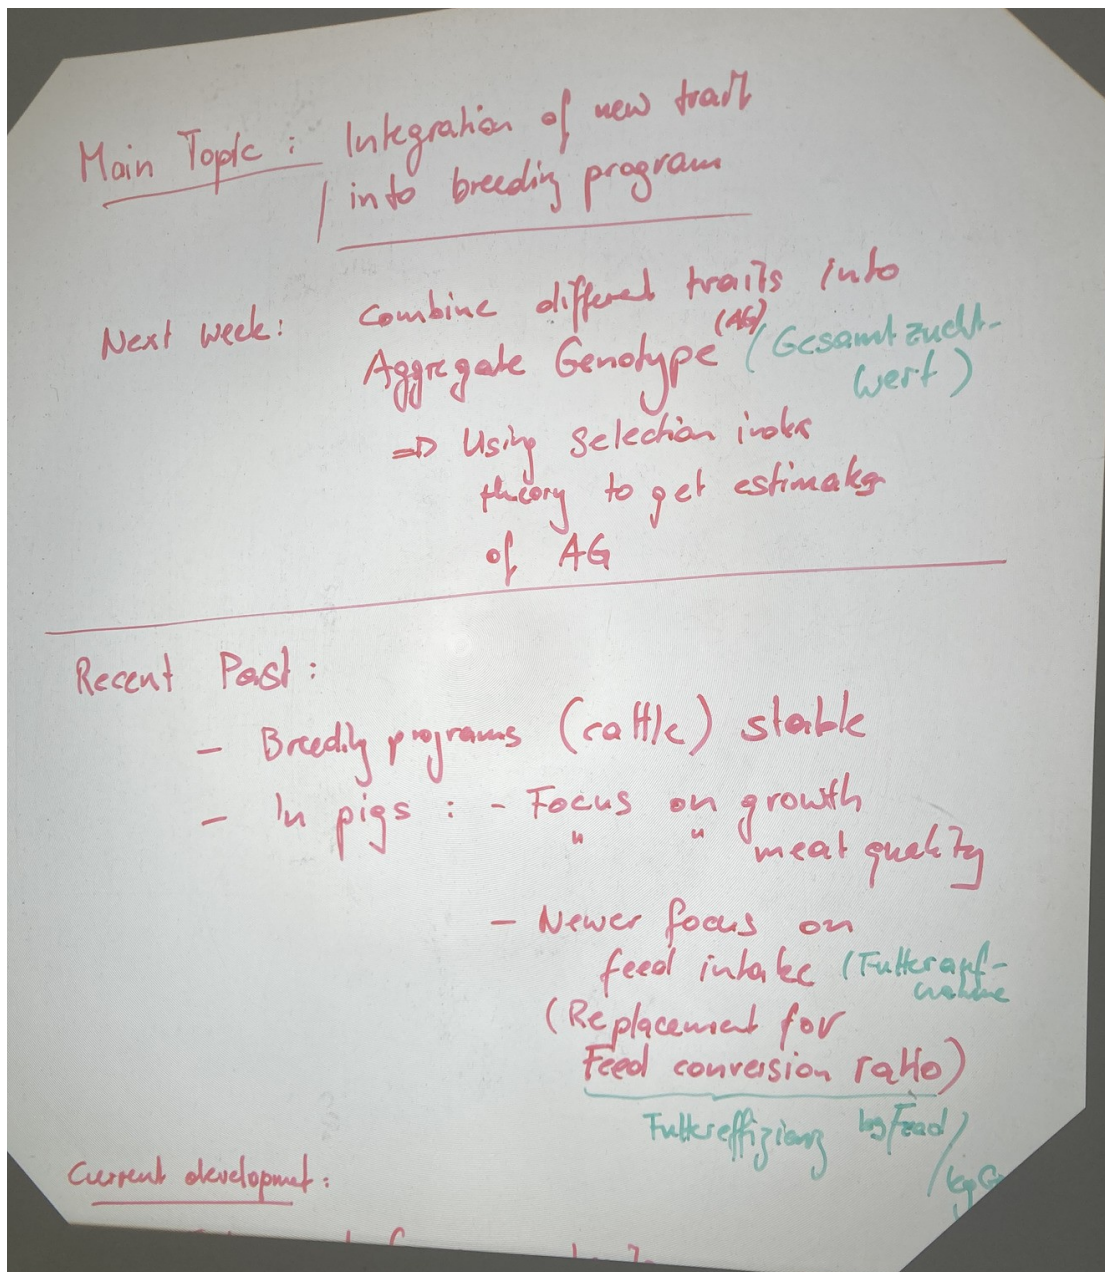 Main Topic : Integration of new trait
into breeding program
Next week: Combine different traits into
Aggregate Genotype (AG) (Gesamtzucht-
wert)
⇒ Using selection index
theory to get estimates
of AG
Recent Past :
- Breeding programs (cattle) stable
- In pigs : - Focus on growth
" " meat quality
- Newer focus on
feed intake (Futterauf-
nahme
(Replacement for
Feed conversion ratio)
Futtereffizienz kg Feed /
kg
Current development :